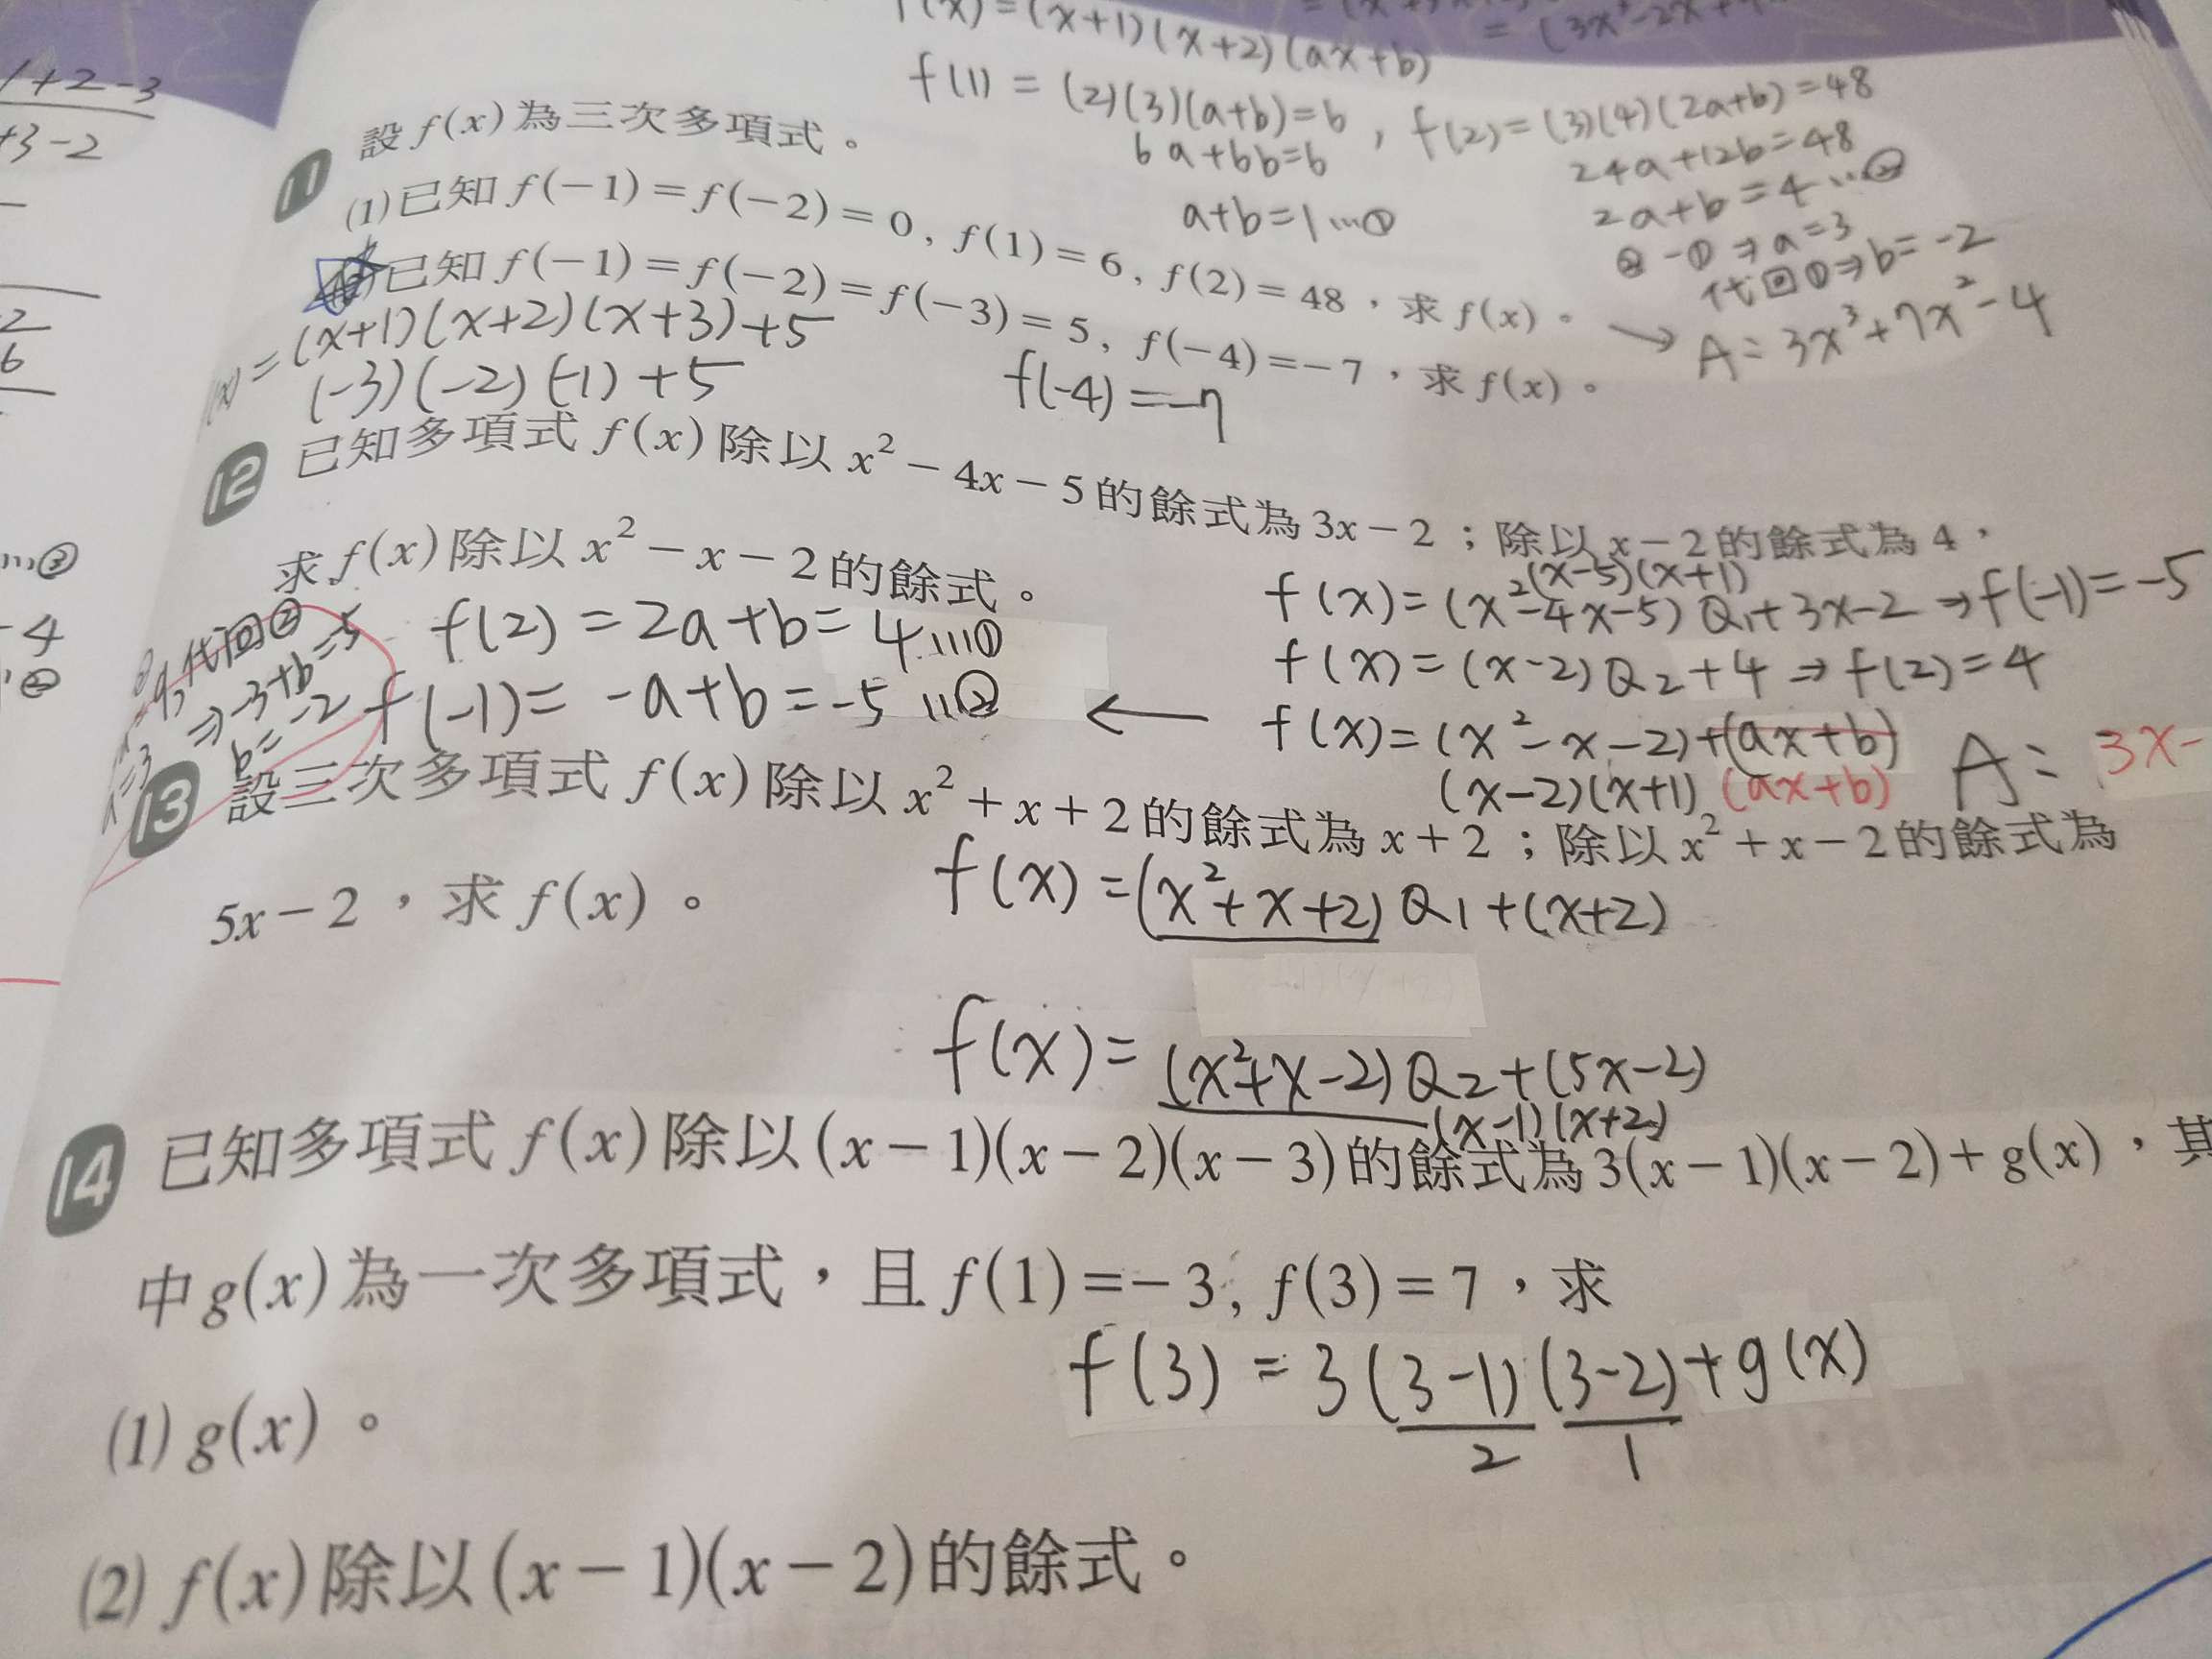 1+2-3
+3-2
2
6
…③
-4
…②
f(x)=(x+1)(x+2)(ax+b)
f(1)=(2)(3)(a+b)=6, f(2)=(3)(4)(2a+b)=48
6a+6b=6
24a+12b=48
a+b=1…①
2a+b=4…②
②-①⇒a=3
代回①⇒b=-2
→ A=3x³+7x²-4
11 設f(x)為三次多項式。
(1)已知f(-1)=f(-2)=0, f(1)=6, f(2)=48,求f(x)。
已知f(-1)=f(-2)=f(-3)=5, f(-4)=-7,求f(x)。
(x)=(x+1)(x+2)(x+3)+5
(-3)(-2)(-1)+5
f(-4)=-7
12 已知多項式f(x)除以x²-4x-5的餘式為3x-2;除以x-2的餘式為4,
求f(x)除以x²-x-2的餘式。
(x-5)(x+1)
f(x)=(x²-4x-5)Q₁+3x-2⇒f(-1)=-5
f(x)=(x-2)Q₂+4⇒f(2)=4
f(x)=(x²-x-2)+(ax+b)
(x-2)(x+1) (ax+b)
A= 3x-
←
f(2)=2a+b=4…①
f(-1)=-a+b=-5…②
代回②
⇒-3+b=-5
b=-2
13 設三次多項式f(x)除以x²+x+2的餘式為x+2;除以x²+x-2的餘式為
5x-2,求f(x)。
f(x)=(x²+x+2)Q₁+(x+2)
f(x)=(x²+x-2)Q₂+(5x-2)
(x-1)(x+2)
14 已知多項式f(x)除以(x-1)(x-2)(x-3)的餘式為3(x-1)(x-2)+g(x),其
中g(x)為一次多項式,且f(1)=-3, f(3)=7,求
f(3)=3(3-1)(3-2)+g(x)
2 1
(1) g(x)。
(2) f(x)除以(x-1)(x-2)的餘式。